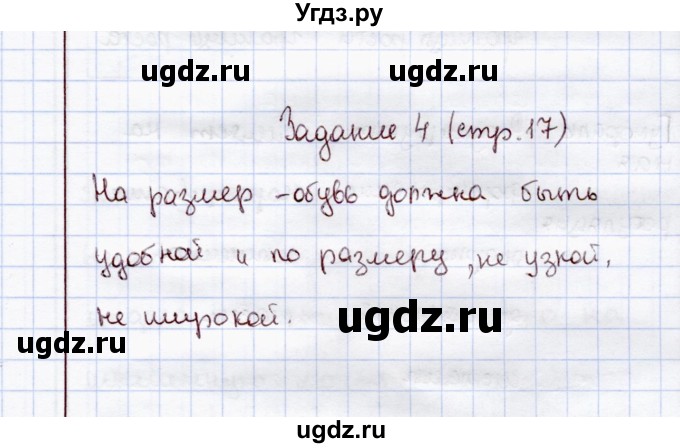 Угдз.ру
ugdz.ru ugdz.ru
Задание 4 (стр. 17)
На размер - обувь должна быть
удобной и по размеру, не узкой,
не широкой.
ugdz.ru
ugdz.ru
ugdz.ru ugdz.ru